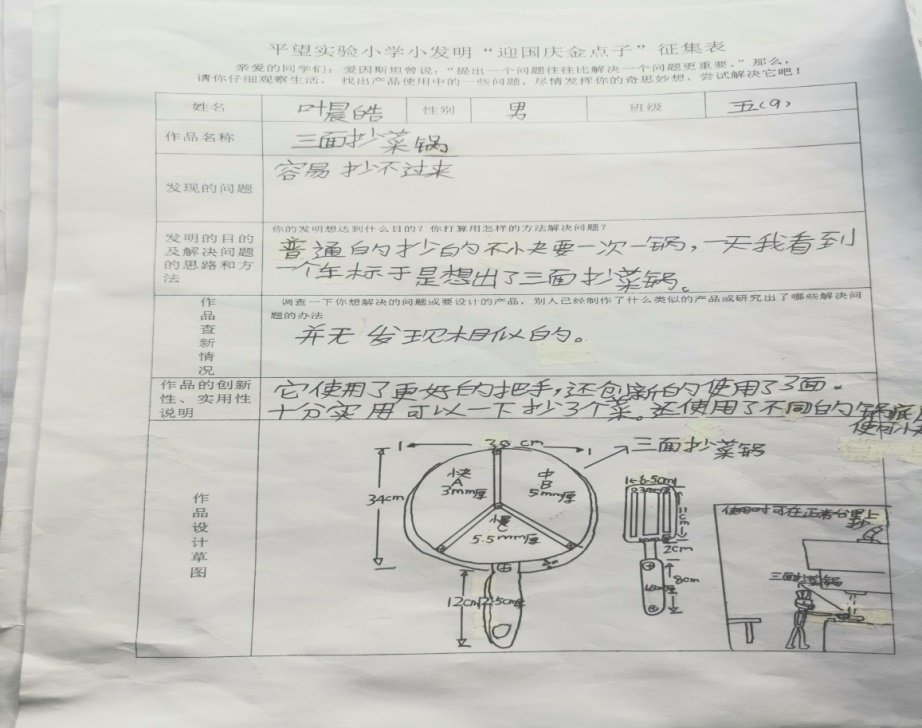 平望实验小学小发明“迎国庆金点子”征集表
亲爱的同学们：爱因斯坦曾说：“提出一个问题往往比解决一个问题更重要。”那么，
请你仔细观察生活，找出产品使用中的一些问题，尽情发挥你的奇思妙想，尝试解决它吧！
姓名 叶晨皓 性别 男 班级 五(9)
作品名称 三面抄菜锅
发现的问题 容易抄不过来
发明的目的及解决问题的思路和方法
你的发明想达到什么目的？你打算用怎样的方法解决问题？
普通的抄的不快要一次一锅，一天我看到
一个车标于是想出了三面抄菜锅。
作品查新情况
调查一下你想解决的问题或要设计的产品，别人已经制作了什么类似的产品或研究出了哪些解决问
题的办法
并无发现相似的。
作品的创新性、实用性说明
它使用了更好的把手，还创新的使用了3面。
十分实用可以一下抄3个菜。还使用了不同的锅底
作品设计草图
38 cm
三面抄菜锅
34cm
快
A
3mm厚
中
B
5mm厚
慢
C
5.5mm厚
12cm
2.5cm厚
2cm
8cm
三面抄菜锅